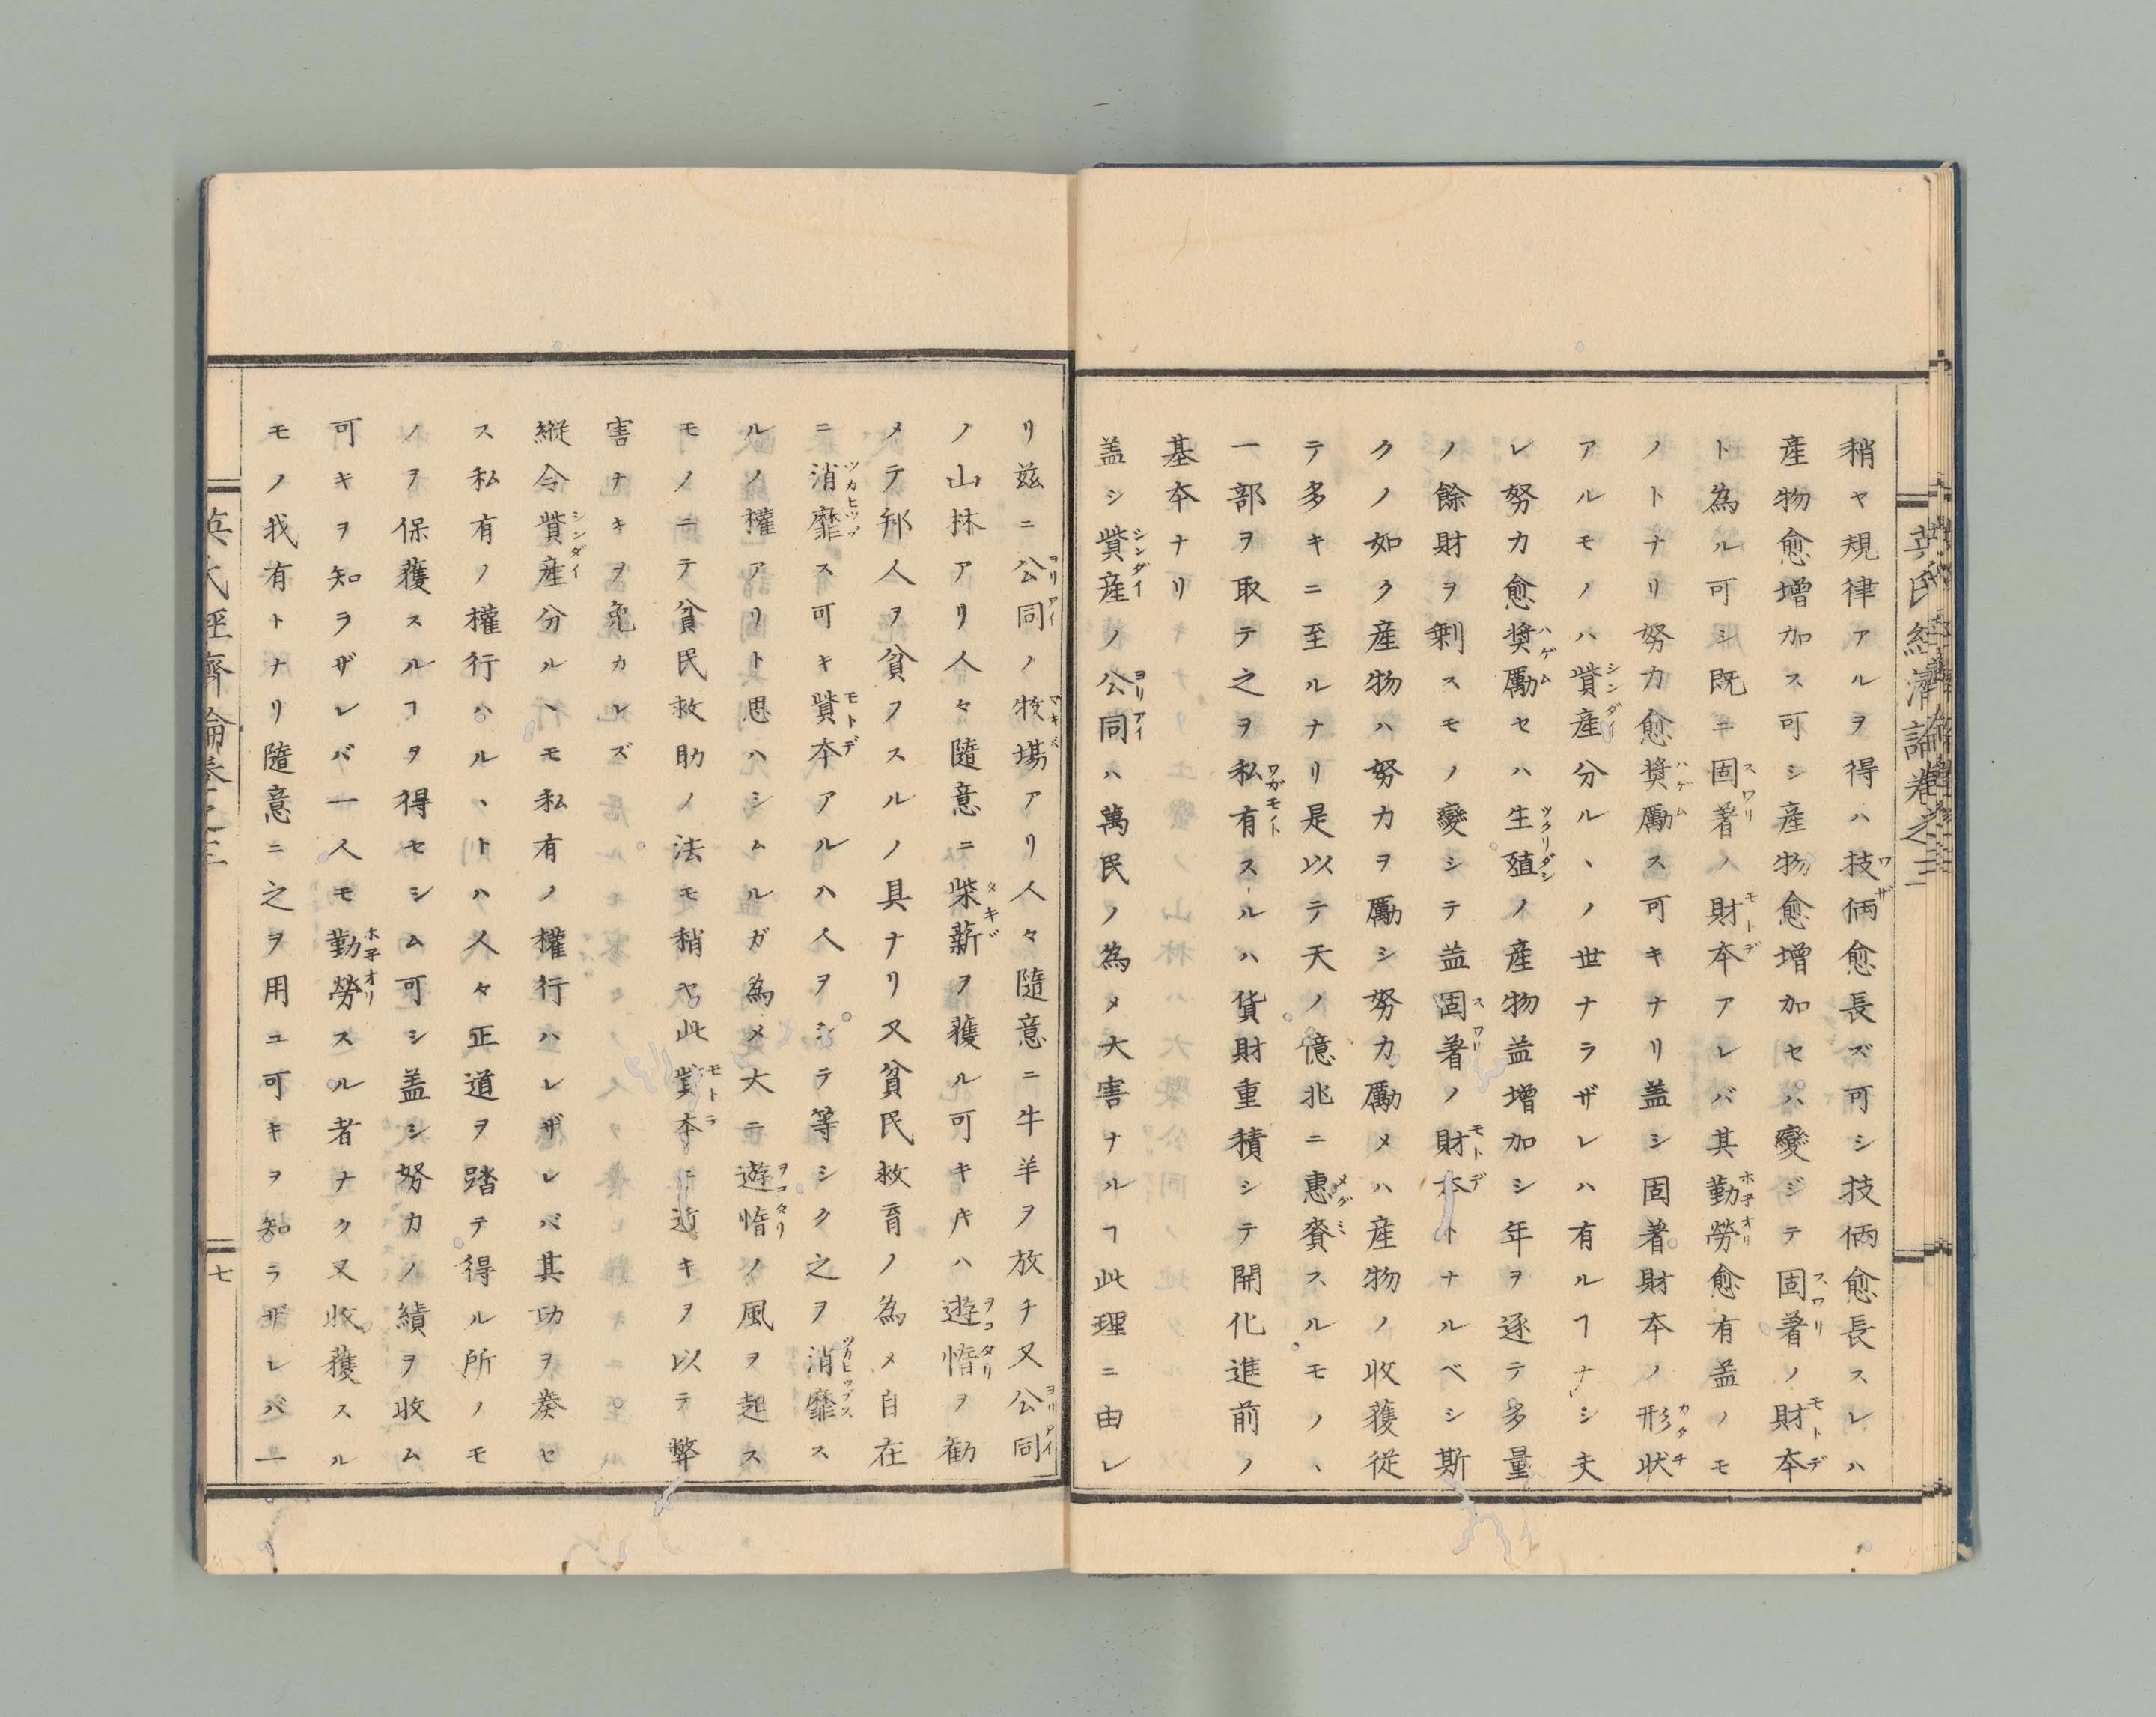 稍ヤ規律アルヲ得ハ技倆愈長ズ可シ技倆愈長スレハ
産物愈増加ス可シ産物愈増加セハ變ジテ固著ノ財本
ト為ル可シ既ニ固著ノ財本アレバ其勤勞愈有益ノモ
ノトナリ努力愈奬勵ス可キナリ盖シ固著財本ノ形状
アルモノハ貲産分ルヽノ世ナラザレハ有ルヿナシ夫
レ努力愈奬勵セハ生殖ノ産物益増加シ年ヲ逐テ多量
ノ餘財ヲ剰スモノ變シテ益固著ノ財本トナルベシ斯
クノ如ク産物ハ努力ヲ勵シ努力勵メハ産物ノ收穫従
テ多キニ至ルナリ是以テ天ノ億兆ニ惠賚スルモノヽ
一部ヲ取テ之ヲ私有スルハ貨財重積シテ開化進前ノ
基本ナリ
盖シ貲産ノ公同ハ萬民ノ為メ大害ナルヿ此理ニ由レ
リ茲ニ公同ノ牧塲アリ人々隨意ニ牛羊ヲ放チ又公同
ノ山林アリ人々隨意ニ柴薪ヲ獲ル可キハ遊惰ヲ勧
メテ邦人ヲ貧フスルノ具ナリ又貧民救育ノ為メ自在
ニ消靡ス可キ貲本アルハ人ヲシテ等シク之ヲ消靡ス
ルノ權アリト思ハシムルガ為メ大ニ遊惰ノ風ヲ起ス
モノニテ貧民救助ノ法モ稍ヤ此貲本ニ近キヲ以テ弊
害ナキヲ免カレズ
縱令貲産分ルヽモ私有ノ權行ハレザレバ其功ヲ奏セ
ス私有ノ權行ハルヽトハ人々正道ヲ踏テ得ル所ノモ
ノヲ保獲スルヿヲ得セシム可シ盖シ努力ノ績ヲ收ム
可キヲ知ラザレバ一人モ勤勞スル者ナク又收穫スル
モノ我有トナリ隨意ニ之ヲ用ユ可キヲ知ラザレバ一
英氏經濟論卷之三
七